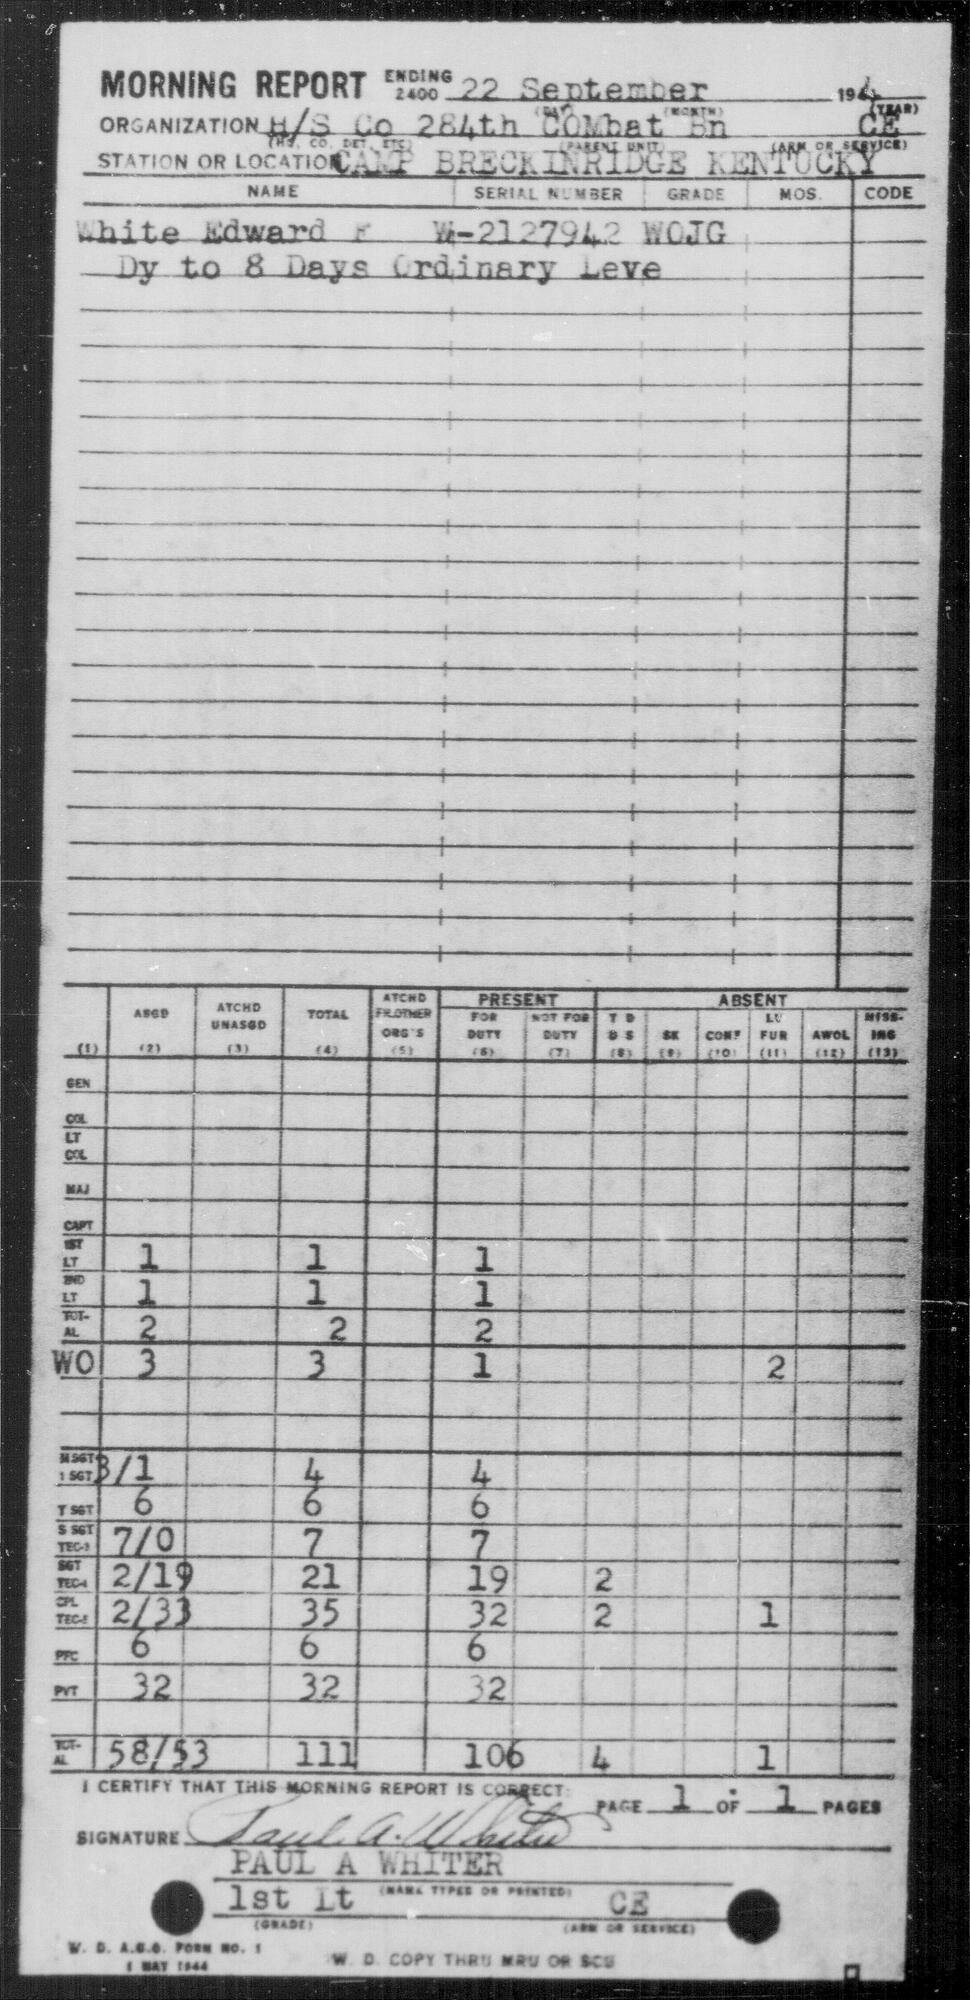 MORNING REPORT ENDING 2400 22 September 1944
(DAY) (MONTH) (YEAR)
ORGANIZATION H/S Co 284th COMbat Bn CE
(HQ, CO, DET, ETC) (PARENT UNIT) (ARM OR SERVICE)
STATION OR LOCATION CAMP BRECKINRIDGE KENTUCKY
NAME SERIAL NUMBER GRADE MOS. CODE
White Edward F W-2127942 WOJG
Dy to 8 Days Ordinary Leve
ATCHD PRESENT ABSENT
ASGD ATCHD UNASGD TOTAL FR.OTHER ORG'S FOR DUTY NOT FOR DUTY T D D S SK CONF LV FUR AWOL MISSING
(1) (2) (3) (4) (5) (6) (7) (8) (9) (10) (11) (12) (13)
GEN
COL
LT COL
MAJ
CAPT
1ST LT 1 1 1
2ND LT 1 1 1
TOTAL 2 2 2
WO 3 3 1 2
M SGT 1 SGT 3/1 4 4
T SGT 6 6 6
S SGT TEC-3 7/0 7 7
SGT TEC-4 2/19 21 19 2
CPL TEC-5 2/33 35 32 2 1
PFC 6 6 6
PVT 32 32 32
TOTAL 58/53 111 106 4 1
I CERTIFY THAT THIS MORNING REPORT IS CORRECT:
PAGE 1 OF 1 PAGES
SIGNATURE Paul A. Whiter
PAUL A WHITER
(NAME TYPED OR PRINTED)
1st Lt CE
(GRADE) (ARM OR SERVICE)
W. D. A.G.O. FORM NO. 1
1 MAY 1944
W. D. COPY THRU MRU OR SCU